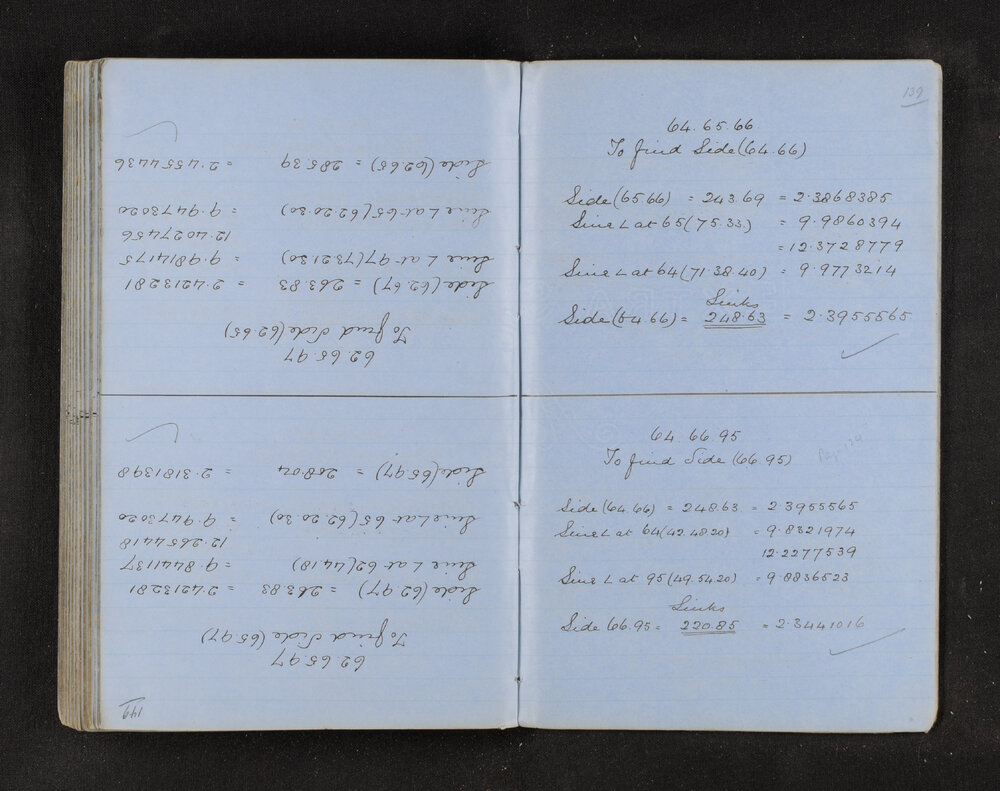 149
62.65.97
To find Side (65.97)
Side (62.97) = 263.83 = 2.4213281
Sine ∠ at 62 (44.18) = 9.8441137
12.2654418
Sine ∠ at 65 (62.20.30) = 9.9473020
Side (65.97) = 208.04 = 2.3181398
62.65.97
To find Side (62.65)
Side (62.97) = 263.83 = 2.4213281
Sine ∠ at 97 (73.21.30) = 9.9814175
12.4027456
Sine ∠ at 65 (62.20.30) = 9.9473020
Side (62.65) = 285.39 = 2.4554436
139
64.65.66
To find Side (64.66)
Side (65.66) = 243.69 = 2.3868385
Sine ∠ at 65 (75.33.) = 9.9860394
= 12.3728779
Sine ∠ at 64 (71.38.40) = 9.9773214
Links
Side (64.66) = 248.63 = 2.3955565
64.66.95
To find Side (66.95)
Side (64.66) = 248.63 = 2.3955565
Sine ∠ at 64 (42.48.20) = 9.8321974
12.2277539
Sine ∠ at 95 (49.54.20) = 9.8836523
Links
Side 66.95 = 220.85 = 2.3441016